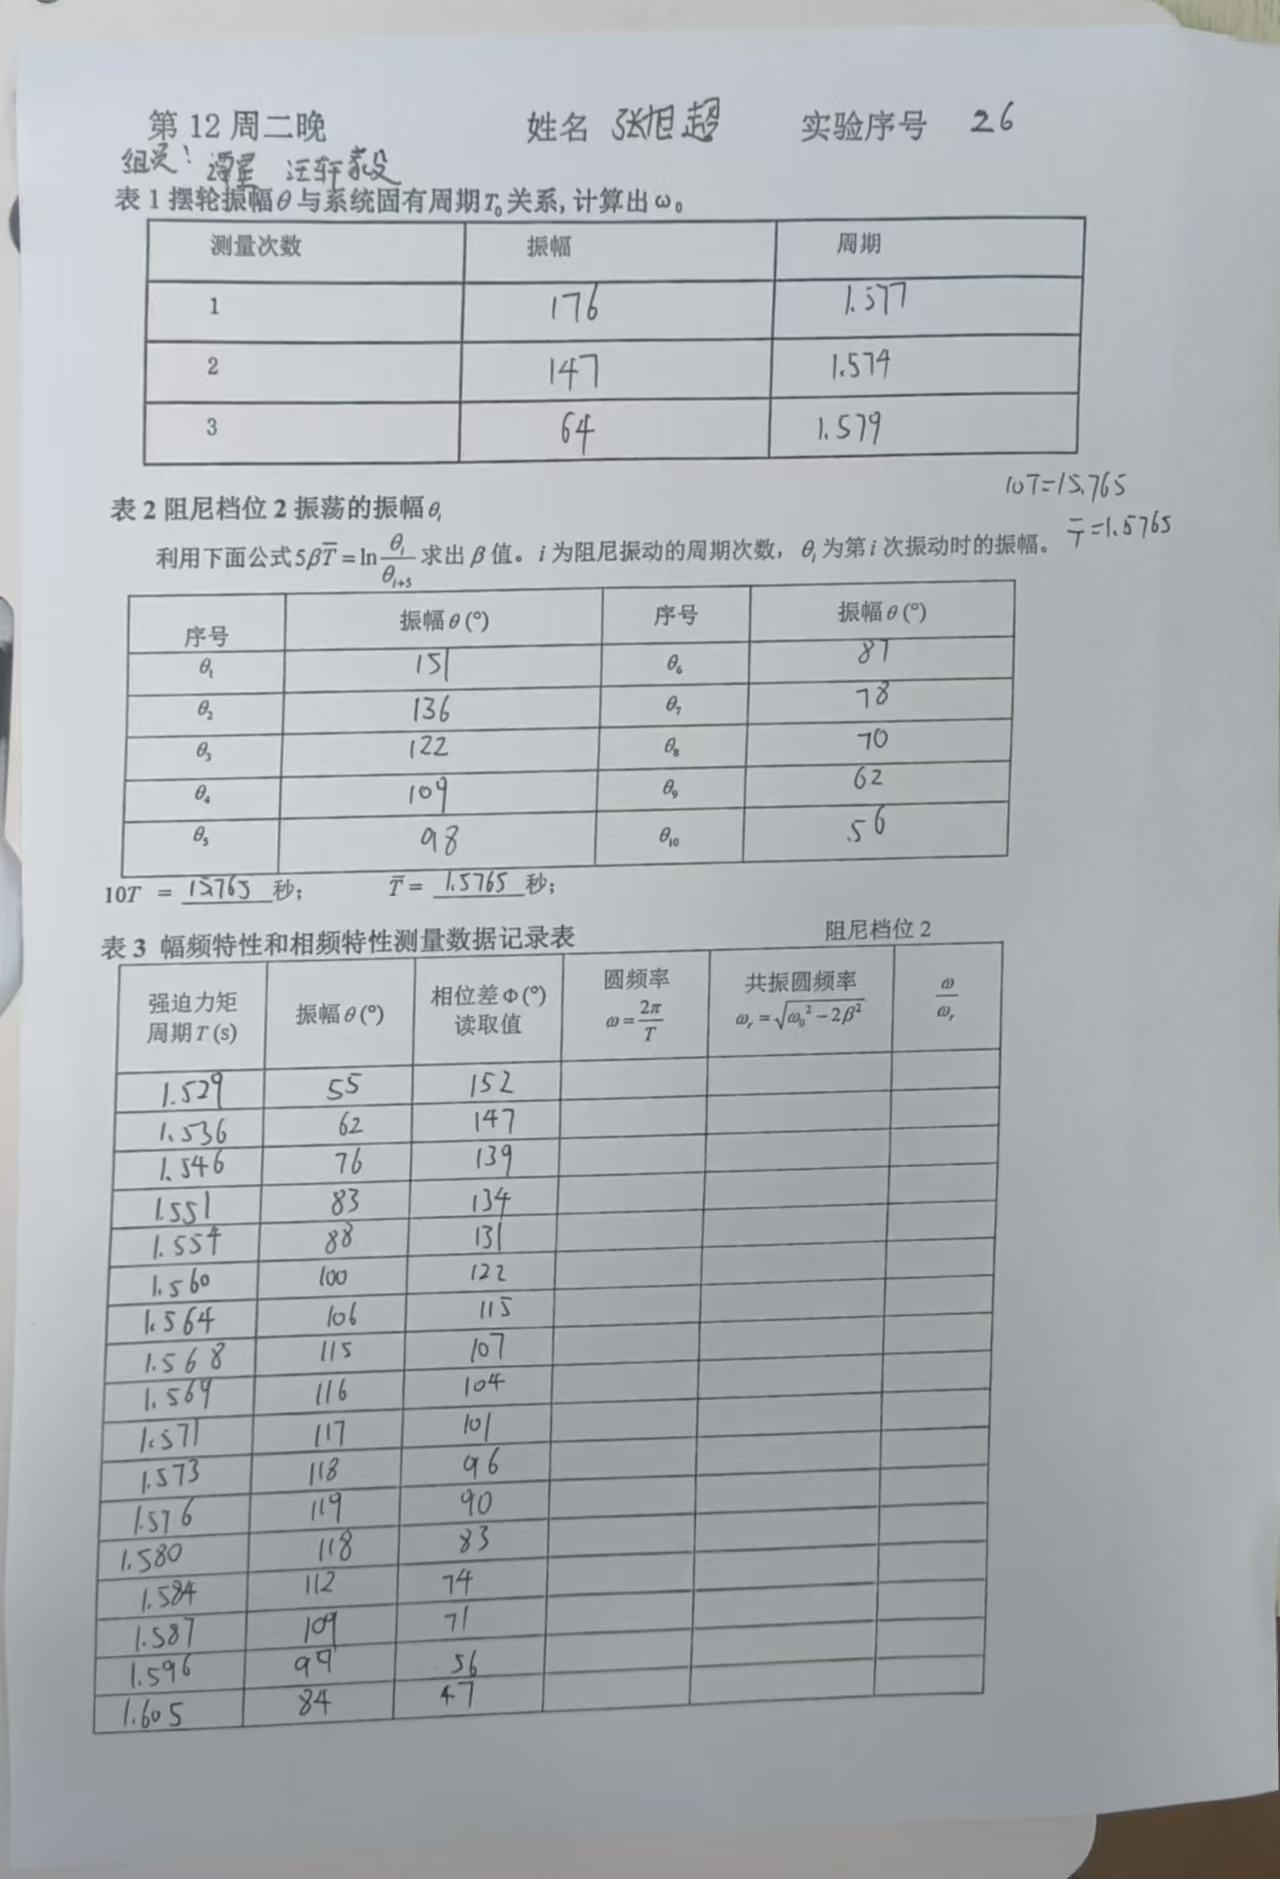 第12周二晚 姓名 张旭超 实验序号 26
组员: 谭星 汪轩毅
表1摆轮振幅θ与系统固有周期T₀关系,计算出ω₀。
测量次数 振幅 周期
1 176 1.577
2 147 1.574
3 64 1.579
10T=15.765
T̄=1.5765
表2阻尼档位2振荡的振幅θᵢ
利用下面公式5βT̄=ln θᵢ/θᵢ₊₅ 求出β值。i为阻尼振动的周期次数,θᵢ为第i次振动时的振幅。
序号 振幅θ(°) 序号 振幅θ(°)
θ₁ 151 θ₆ 87
θ₂ 136 θ₇ 78
θ₃ 122 θ₈ 70
θ₄ 109 θ₉ 62
θ₅ 98 θ₁₀ 56
10T = 15.765 秒; T̄= 1.5765 秒;
表3 幅频特性和相频特性测量数据记录表 阻尼档位2
强迫力矩周期T(s) 振幅θ(°) 相位差Φ(°)读取值 圆频率ω=2π/T 共振圆频率ωᵣ=√(ω₀²−2β²) ω/ωᵣ
1.529 55 152
1.536 62 147
1.546 76 139
1.551 83 134
1.554 88 131
1.560 100 122
1.564 106 115
1.568 115 107
1.569 116 104
1.571 117 101
1.573 118 96
1.576 119 90
1.580 118 83
1.584 112 74
1.587 109 71
1.596 99 56
1.605 84 47